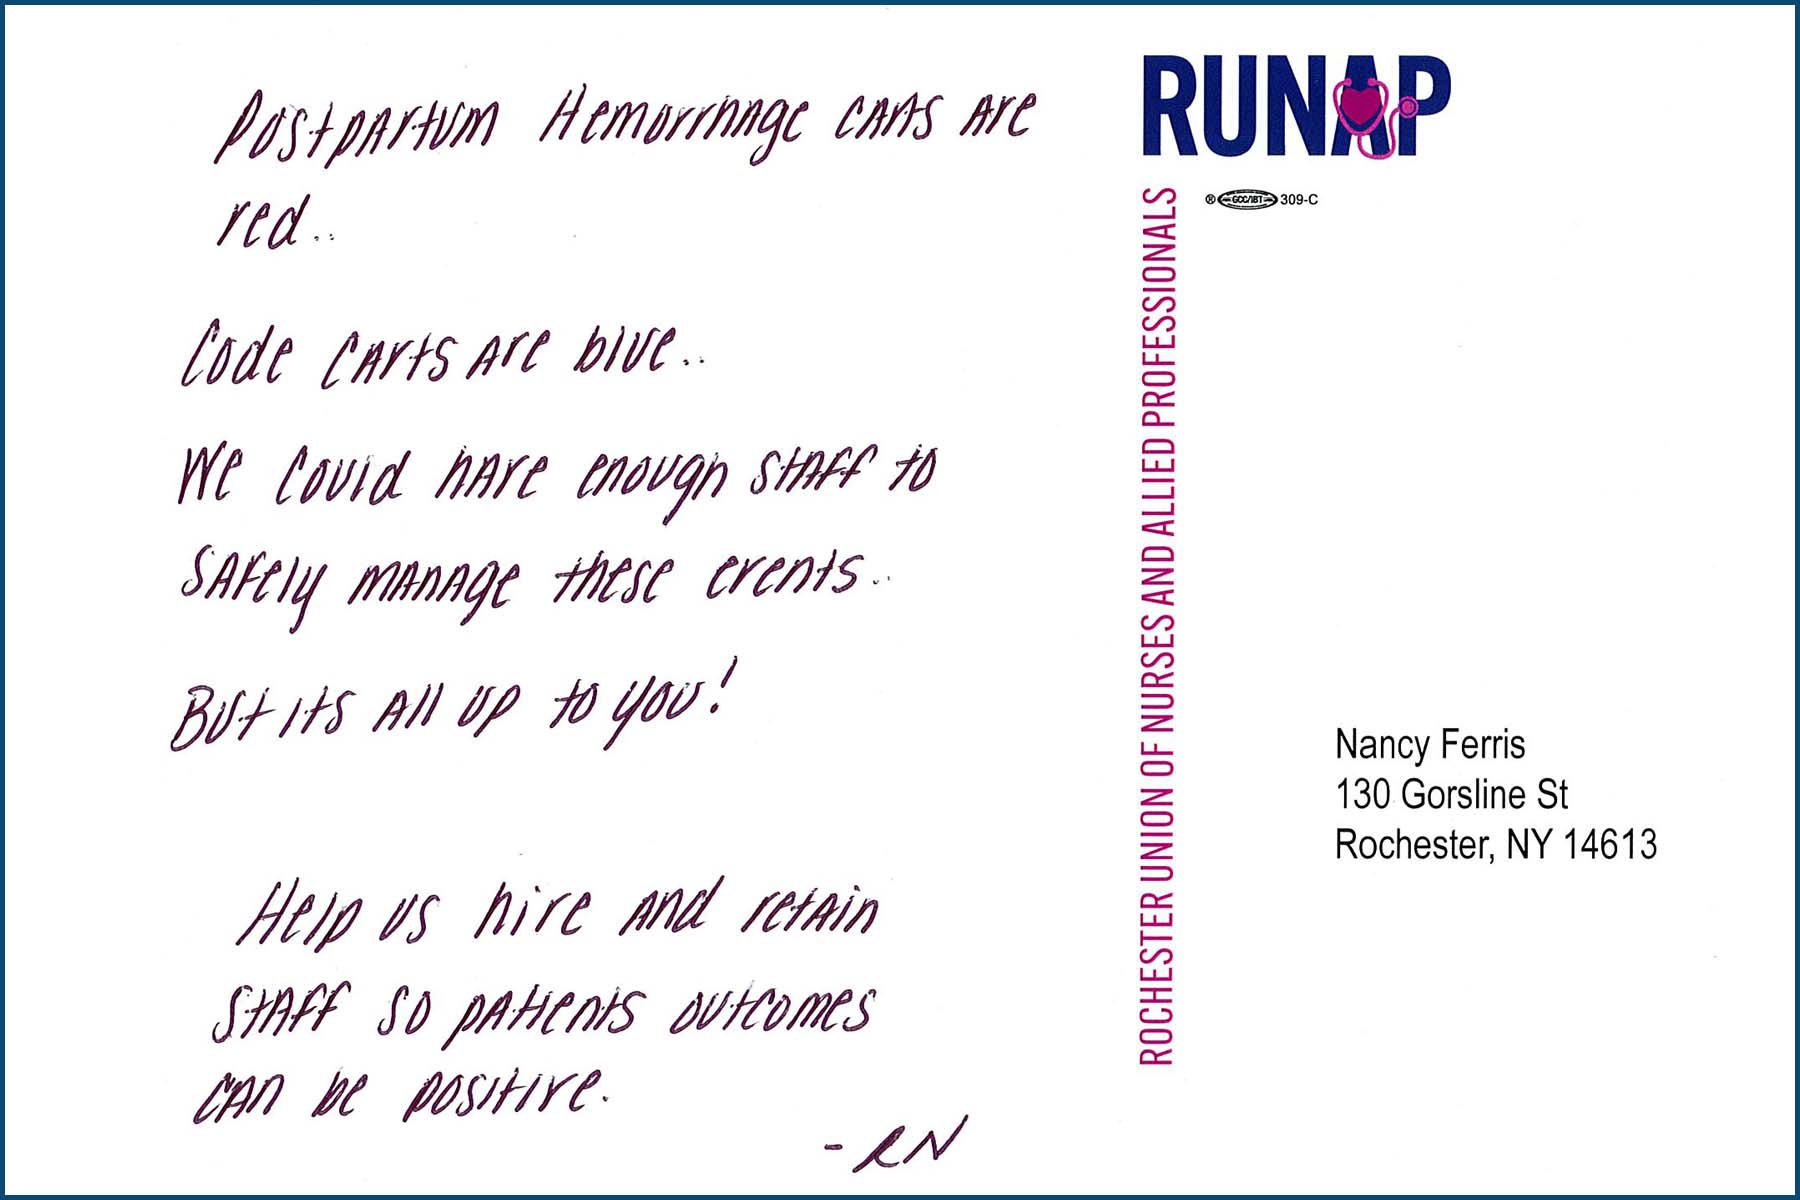 Postpartum Hemorrhage carts are
red..
Code carts are blue..
We could have enough staff to
safely manage these events..
But its all up to you!
Help us hire and retain
staff so patients outcomes
can be positive.
- RN
RUNAP
® GCC/IBT 309-C
ROCHESTER UNION OF NURSES AND ALLIED PROFESSIONALS
Nancy Ferris
130 Gorsline St
Rochester, NY 14613